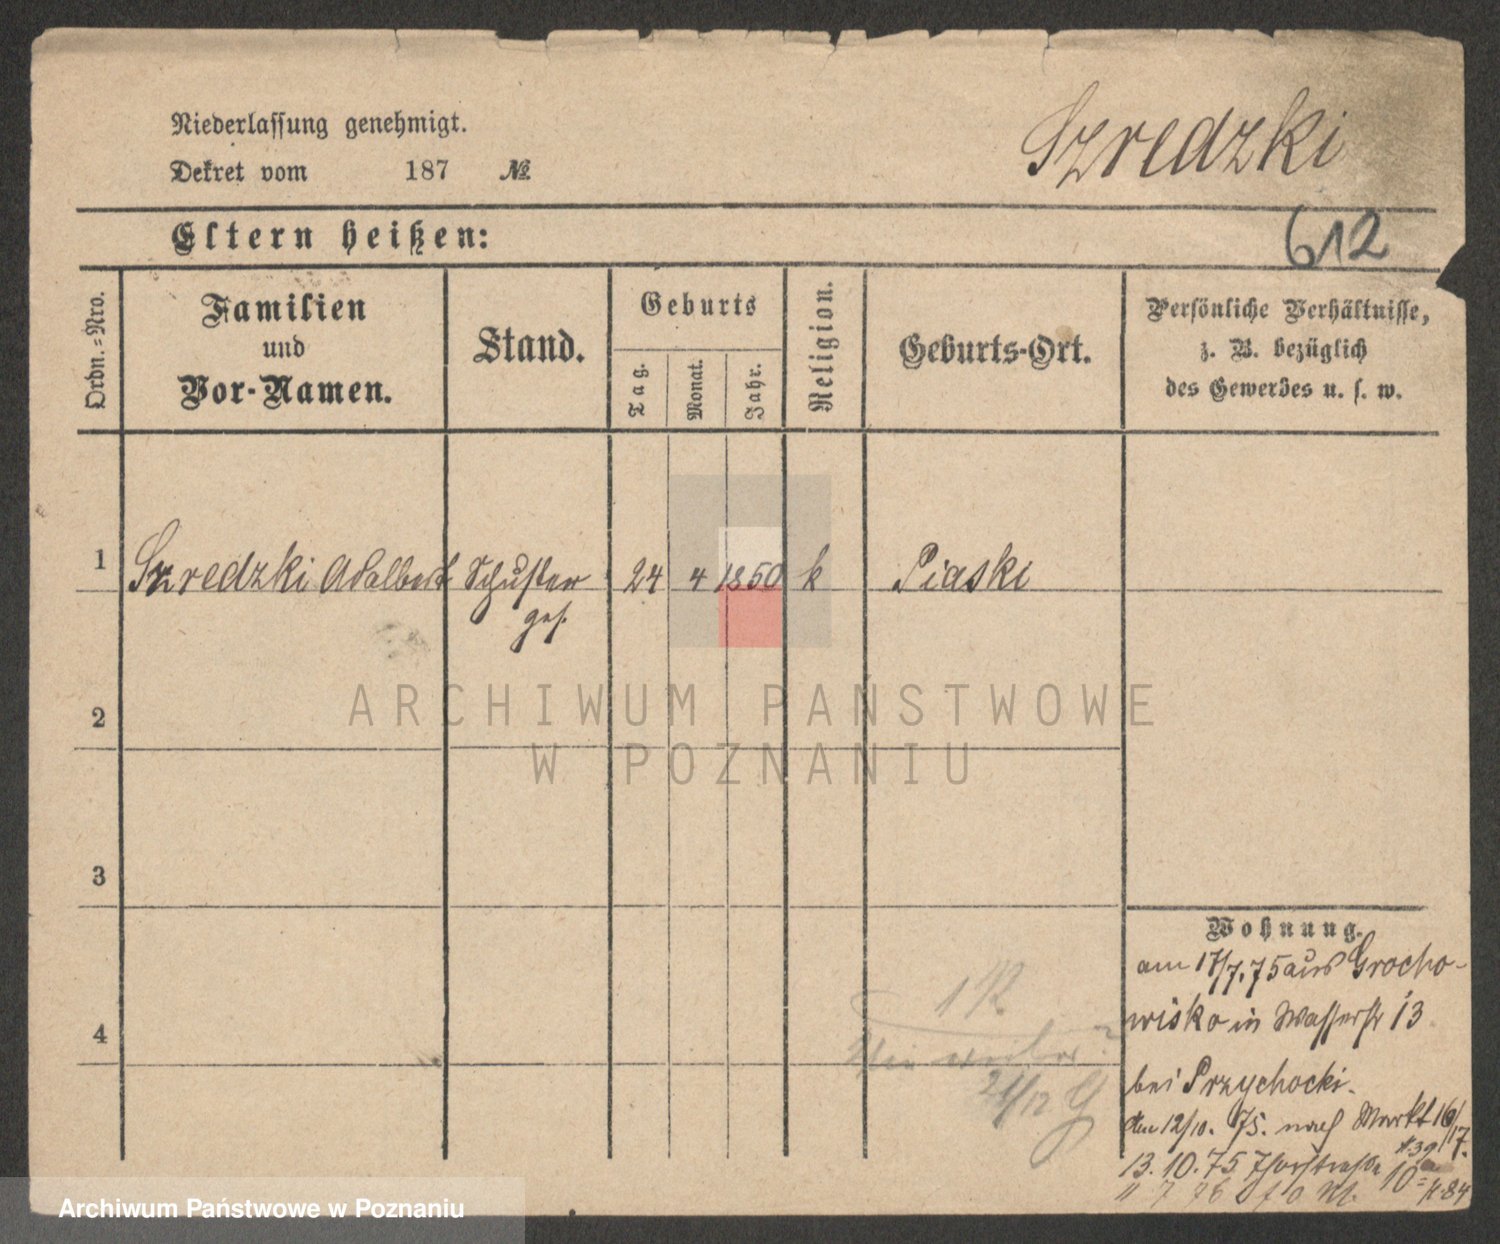 Niederlassung genehmigt.
Szredzki
Dekret vom 187 №
Eltern heißen:
612
Ordn.-Nro.
Familien
und
Vor-Namen.
Stand.
Geburts
Tag.
Monat.
Jahr.
Religion.
Geburts-Ort.
Persönliche Verhältnisse,
z. B. bezüglich
des Gewerbes u. s. w.
1 Szredzki Adalbert Schuster 24 4 1850 k Piaski
ges.
ARCHIWUM PAŃSTWOWE
W POZNANIU
2
3
4
Wohnung.
am 17/7.75 aus Grocho-
wisko in Wasserstr 13
bei Przychocki.
den 12/10. 75. nach Markt 16/17.
13. 10. 75
21/12
Archiwum Państwowe w Poznaniu